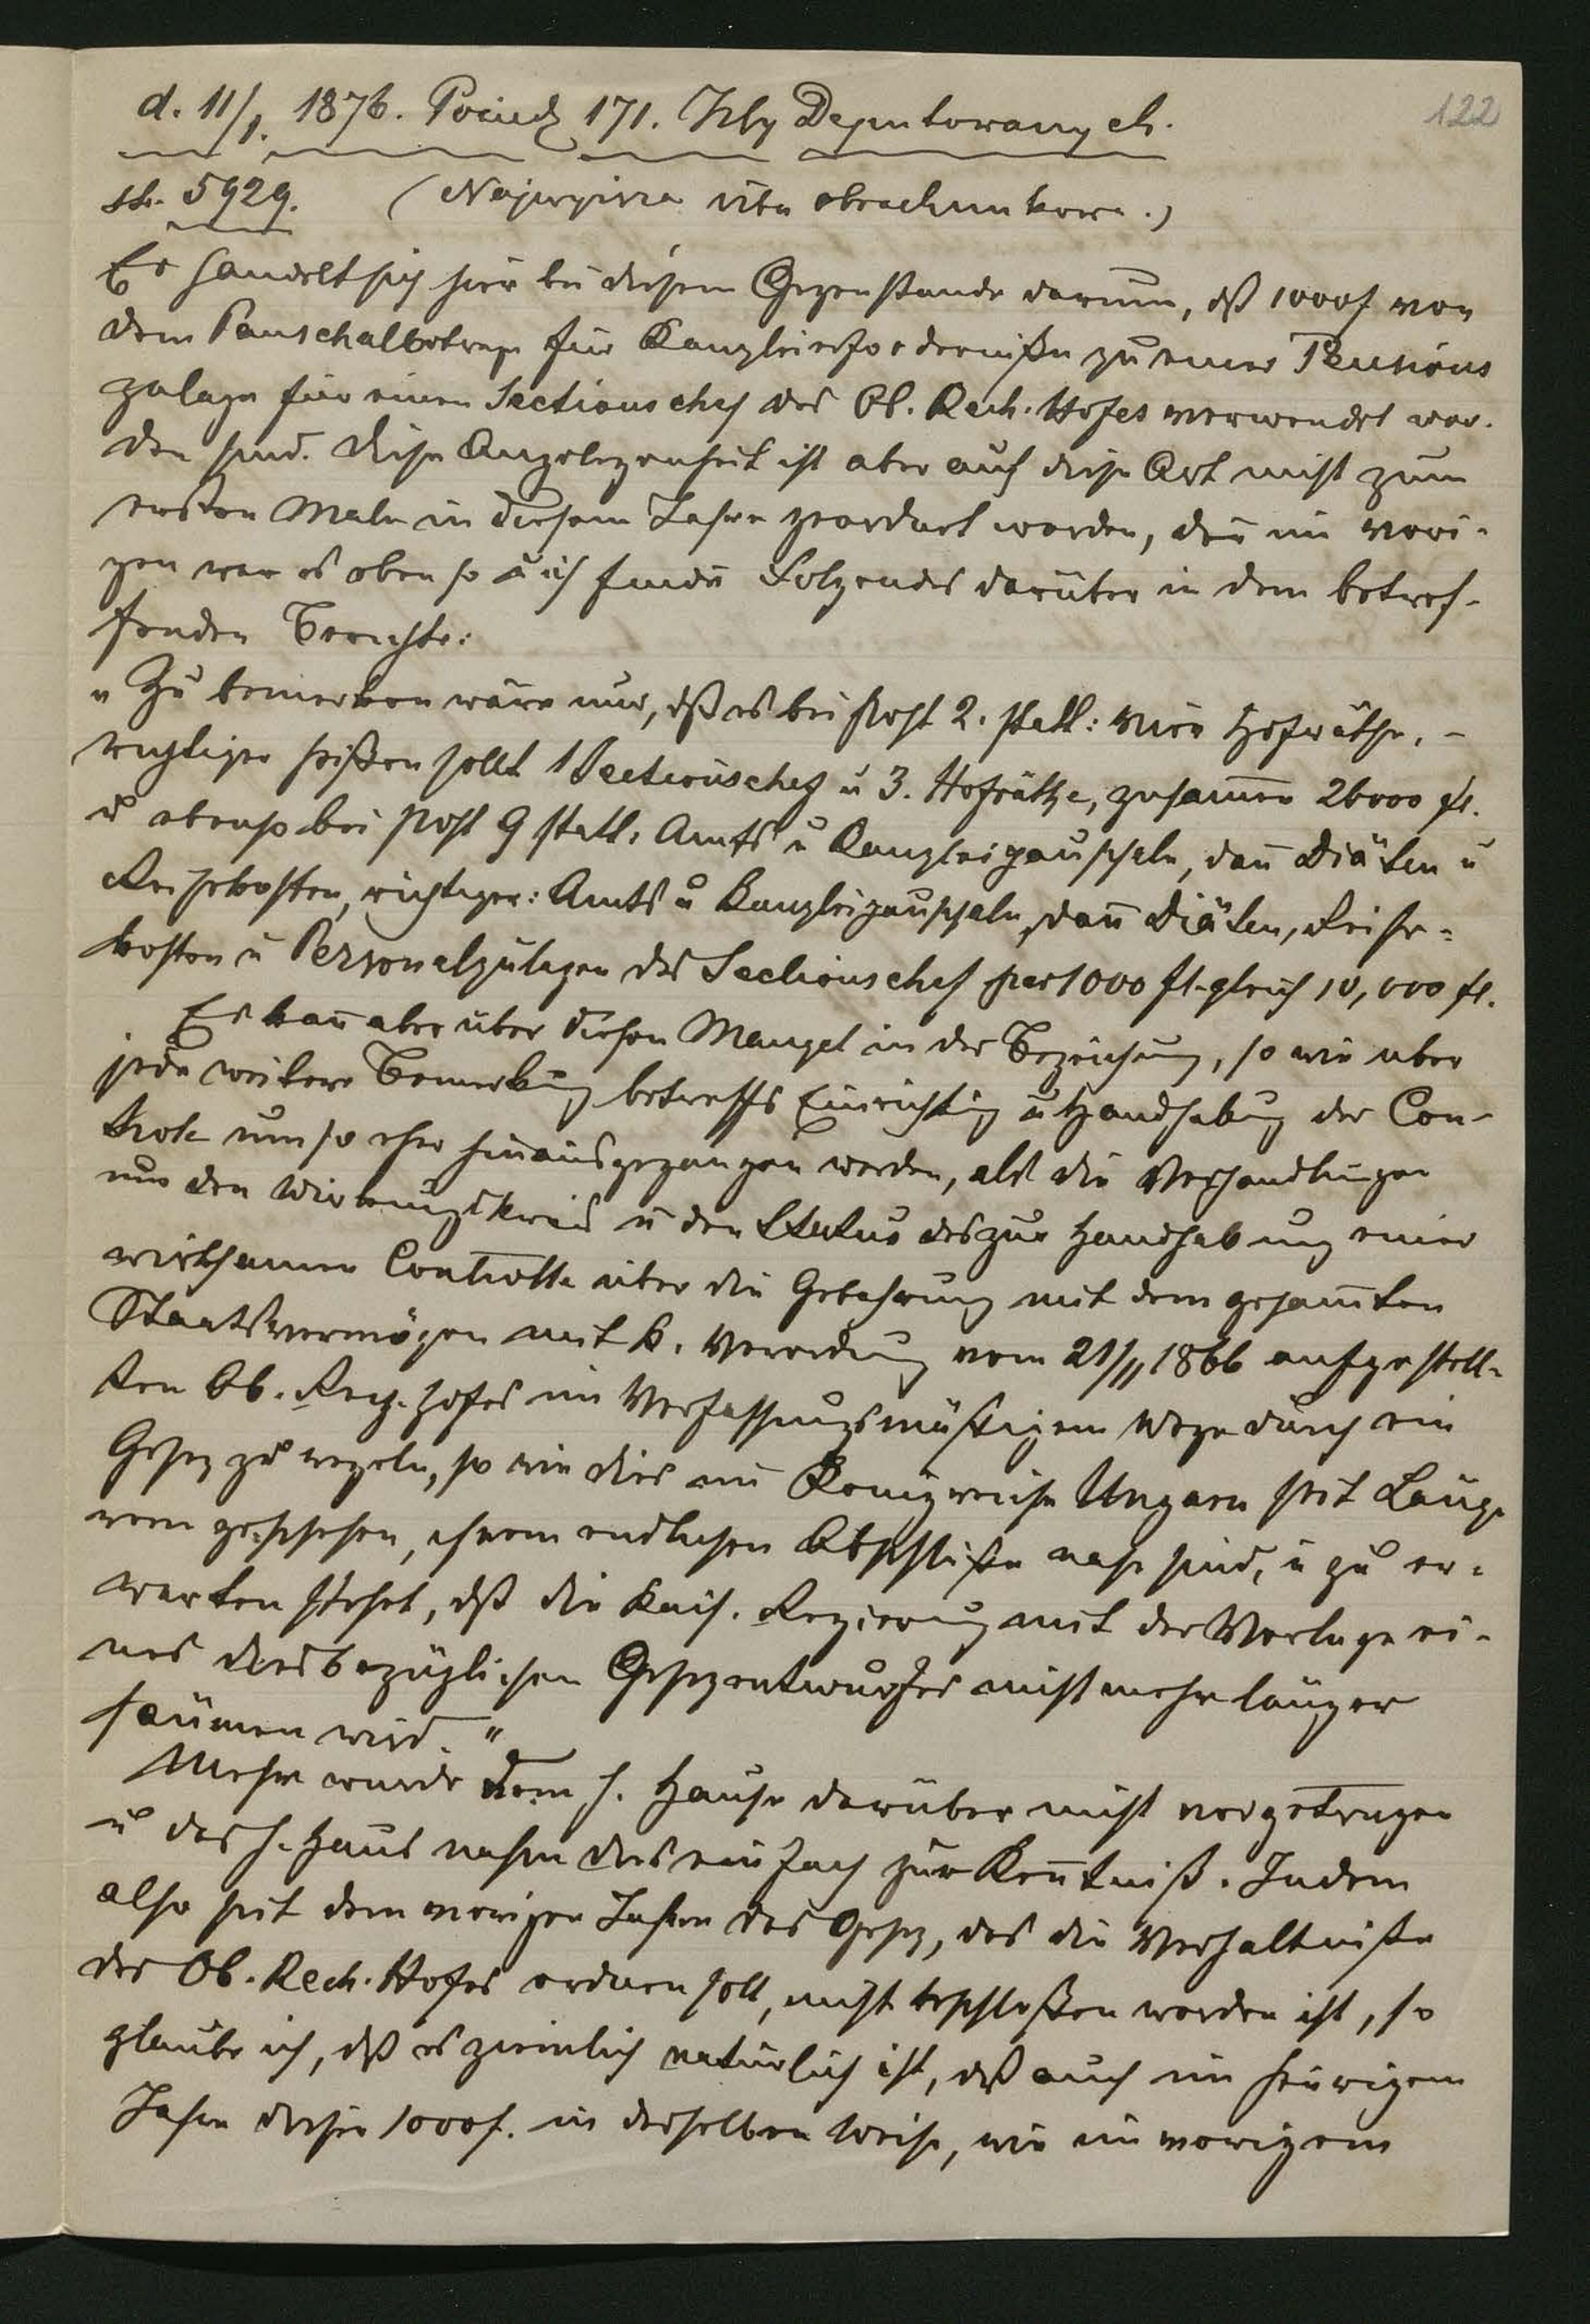 122
d. 11/1. 1876. Posiedz. 171. Izby Deputowanych.
str. 5929. (Najwyższa izba obrachunkowa.)
Es handelt sich hier bei diesem Gegenstande darum, dß 1000 f von
dem Pauschalbetrage für Kanzleierfordernisse zu einer Pensions
zulage für einen Sectionschef des Ob. Rech. Hofes verwendet wor-
den sind. Diese Angelegenheit ist aber auf diese Art nicht zum
ersten Male in diesem Jahre geordnet worden, den̄ im vori-
gen war es eben so u ich finde Folgendes darüber in dem betref-
fenden Berichte:
"Zu bemerken wäre nur, dß es bei Post 2. statt: vier Hofräthe, -
richtiger heißen sollt 1 Sectionschef u 3. Hofräthe, zusam̄en 26000 fl.
u ebenso bei Post 9 statt: Amts u Kanzleipauschale, dan̄ Diäten u
Reisekosten, richtiger: Amts u Kanzleipauschale, dan̄ Diäten, Reise-
kosten u Personalzulagen des Sectionschef per 1000 fl. gleich 10,000 fl.
Es kan̄ aber über diesen Mangel in der Bezeichnung, so wie über
jede weitere Bemerkung betreffs Einrichtung u Handhabung der Con-
trole um so eher hinausgegangen werden, als die Verhandlungen
um den Wirkungskreis u den Status des zur Handhabung einer
wirksamen Controlle über die Gebahrung mit dem gesam̄ten
Staatsvermögen mit k. Verordnung vom 21/11 1866 aufgestell-
ten Ob. Rech. hofes im Verfassungsmäßigem Wege durch ein
Gesez zu regeln, so wie dies im Königreiche Ungarn seit Länge-
rem geschehen, ihrem endlichen Abschluße nahe sind, u zu er-
warten stehet, dß die kais. Regierung mit der Vorlage ei-
nes diesbezüglichen Gesezentwurfes nicht mehr länger
säumen wird."
Mehr wurde dem h. Hause darüber nicht vorgetragen
u das h. Haus nahm dies einfach zur Ken̄tniß. Indem
also seit dem vorigen Jahre das Gesez, das die Verhältniße
des Ob. Rech. Hofes ordnen soll, nicht beschloßen worden ist, so
glaube ich, dß es ziemlich natürlich ist, dß auch im heurigem
Jahre diese 1000 f. in derselben Weise, wie im vorigem